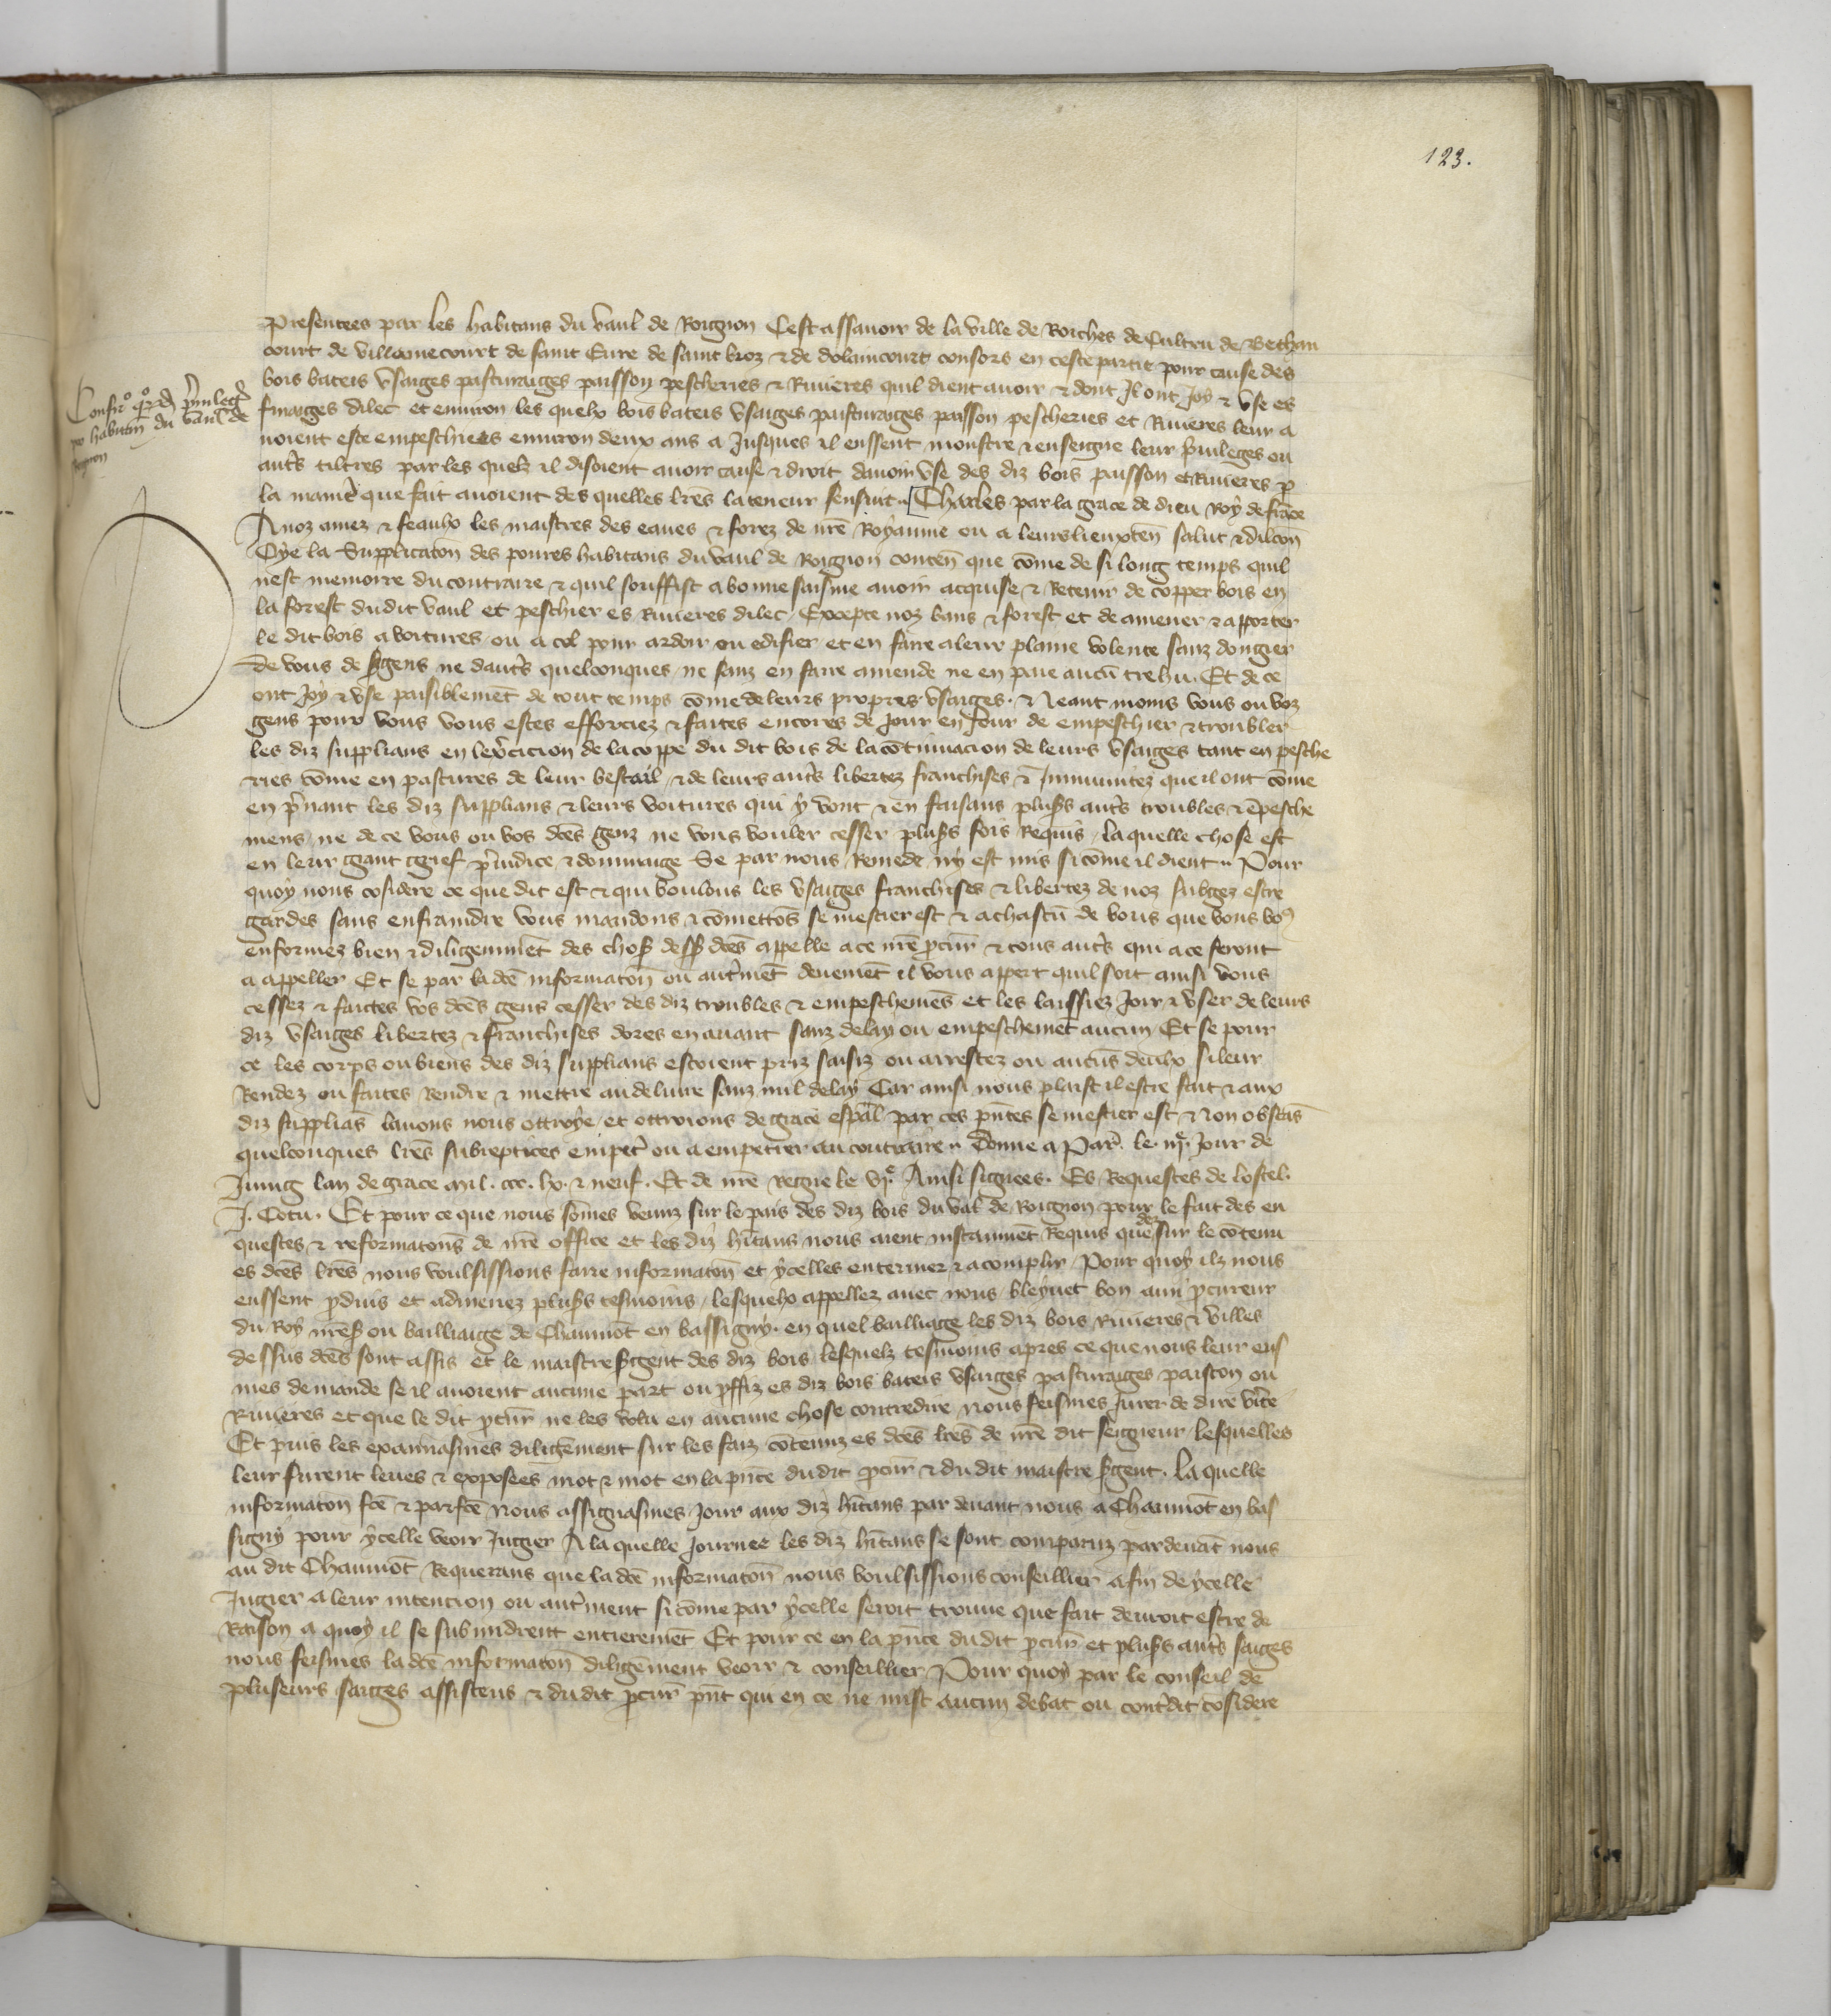 123.
Presentees par les habitans du vaul de Rorgnon Cest assavoir de la ville de Roiches de Cultru de Bethan
court de villconecourt de saint Eure de saint broz & de dolaincourt consors en ceste partie pour cause des
bois bateis usaiges pasturaiges paisson pescheries & Rivieres quil dient avoir & dont Il ont Joy & use es
finaiges dilec et environ les quelx bois bateis usaiges pasturaiges paisson pescheries et Rivieres leur a
voient este empeschiees environ deux ans a Jusques il eussent monstre & enseigne leur privileges ou
autrs tiltres par les quelz il disoient avoir cause & droit davoir use des diz bois paisson et Rivieres p
la maniere que fait avoient des quelles lres la teneur sensuit Charles par la grace de dieu Roy de france
A noz amez & feaulx les maistres des eaues & forez de nre Royaume ou a leurs lieuxten salut & dilcon
Oye la Supplicaton des povres habitans du vaul de Rorgnon conten que come de si long temps quil
nest memoire du contraire & quil souffist a bonne saisine avoir acquise & Retenir de copper bois en
la forest dudit vaul et peschier es Rivieres dilec Excepte noz bans & forest et de amener & apporter
le dit bois a voitures ou a col pour ardoir ou edifier et en faire a leur plaine volente sanz dongier
de vous de sgens ne dautrs quelconques ne sanz en faire amende ne en paie aucu trehu. Et de ce
ont Joy & use paisiblemet de tout temps come de leurs propres usaiges. & Neant moins vous ou voz
gens pour vous vous estes efforciez & faites encores de Jour en Jour de empeschier & troubler
les diz supplians en lexercicion de la coppe du dit bois de la continuacion de leurs usaiges tant en pesche
ries come en pastures de leur bestail & de leurs autrs libertez franchises & Immunitez que il ont come
en prnant les diz supplians & leurs voitures qui y vont & en faisans plusrs autrs troubles & epesche
mens ne de ce vous ou vos dces genz ne vous vouler cesser plusrs fois Requis la quelle chose est
en leur grant grief preiudice & dommaige Se par nous Remede ny est mis si come il dient Pour
quoy nous cosidere ce que dit est & qui voulons les usaiges franchises & libertez de noz subgez estre
gardes sans enfraindre vous mandons & comettos se mestier est & a chascu de vous que vous vo9
enformez bien & diligemmet des chos dessus dces appelle a ce nre pcur & tous autrs qui a ce seront
a appeller Et se par la dce informaton ou autrmet deuemet il vous appert quil soit ainsi vous
cessez & faictes vos dces gens cesser des diz troubles & empeschemes et les laissiez Joir & user de leurs
diz usaiges libertez & franchises dores en avant sanz delay ou empeschemet aucun Et se pour
ce les corps ou biens des diz supplians estoient priz saisiz ou arrestez ou aucus deulx si leur
Rendez ou faites Rendre & mettre au delivre sanz nul delay Car ainsi nous plaist il estre fait & aux
diz supplias lavons nous ottroye et ottroions de grace espal par ces pntes se mestier est & Non obstas
quelconques lres subreptices empetr ou a empetrer au contraire Donne a Par le. iije Jour de
Juing lan de grace mil. ccc. lx. & neuf. Et de nre Regne le vje Ainsi signees. Es Requestes de lostel.
J. Cotu. Et pour ce que nous somes venuz sur le pais des diz bois du val de Rorgnon pour le fait des en
questes & reformatons de nre office et les diz hitans nous aient instanmet Requis que sur le contenu
es dces lres nous voulsissions faire informaton et ycelles enteriner & acomplir Pour quoy ilz nous
eussent pduis et admenez plusrs tesmoins lesquelx appellez avec nous bleyuet bon ami pcureur
du Roy nres ou bailliaige de Chaumot en bassigny. en quel bailliage les diz bois Rivieres & villes
dessus dces sont assis et le maistre sgent des diz bois lesquelz tesmoins apres ce que nous leur eus
mes demande se il avoient aucune part ou pffiz es diz bois bateis usaiges pasturaiges paiscon ou
Rivieres et que le dit pcur ne les volu en aucune chose contredire nous feismes Jurer de dire verite
Et puis les examinasmes diligement sur les faiz contenuz es dces lres de nre dit seigneur lesquelles
leur furent leues & exposees mot & mot en la pnce dudit pcur & du dit maistre sgent. La quelle
informaton fce & parfce Nous assignasmes Jour aux diz hitans par devant nous a Chaumot en bas
signy pour ycelle veoir Jugier A la quelle Journee les diz hitans se sont comparuz pardevat nous
au dit Chaumot Requerans que la dce informaton nous voulsissions conseillier afin de ycelle
Jugier a leur intencion ou autrment si come par ycelle seroit trouve que fait devroit estre de
Raison a quoy il se submidrent entieremet Et pour ce en la pnce dudit pcur et plusrs autrs saiges
nous feismes la dce informaton diligement veoir & conseillier Pour quoy par le conseil de
pluseurs saiges assistens & dudit pcur pnt qui en ce ne mist aucun debat ou contrdit cosidere